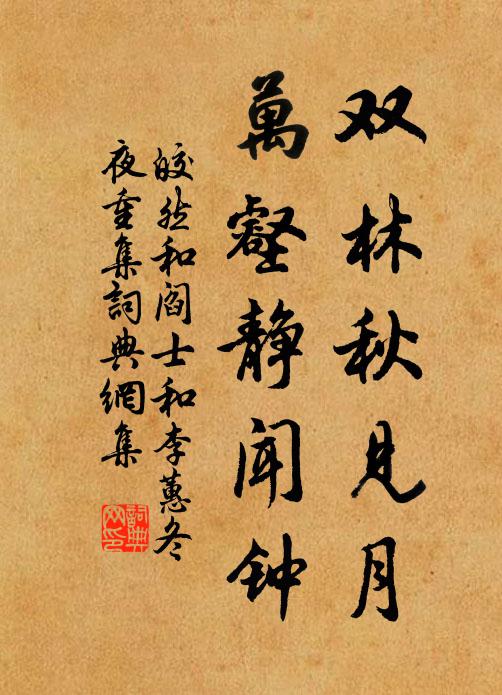 双林秋见月
萬壑静闻钟
皎然和阎士和李蕙冬
夜重集詞典網集
詞典
网印